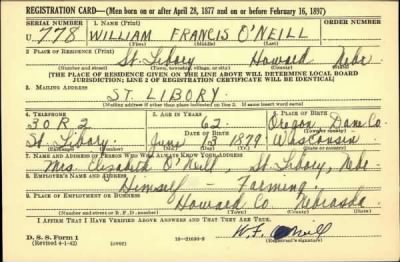 REGISTRATION CARD—(Men born on or after April 28, 1877 and on or before February 16, 1897)
SERIAL NUMBER 1. NAME (Print) ORDER NUMBER
U 778 WILLIAM FRANCIS O'NEILL
(First) (Middle) (Last)
2. PLACE OF RESIDENCE (Print)
St. Libory Howard Nebr
(Number and street) (Town, township, village, or city) (County) (State)
[THE PLACE OF RESIDENCE GIVEN ON THE LINE ABOVE WILL DETERMINE LOCAL BOARD
JURISDICTION; LINE 2 OF REGISTRATION CERTIFICATE WILL BE IDENTICAL]
3. MAILING ADDRESS
ST. LIBORY
[Mailing address if other than place indicated on line 2. If same insert word same]
4. TELEPHONE 5. AGE IN YEARS 6. PLACE OF BIRTH
30R2 62 Oregon Dane Co.
DATE OF BIRTH (Town or county)
St. Libory June 13 1879 Wisconsin
(Exchange) (Number) (Mo.) (Day) (Yr.) (State or country)
7. NAME AND ADDRESS OF PERSON WHO WILL ALWAYS KNOW YOUR ADDRESS
Mrs. Elizabeth O'Neill, St. Libory, Nebr
8. EMPLOYER'S NAME AND ADDRESS
Himself — Farming
9. PLACE OF EMPLOYMENT OR BUSINESS
Howard Co. Nebraska
(Number and street or R. F. D. number) (Town) (County) (State)
I AFFIRM THAT I HAVE VERIFIED ABOVE ANSWERS AND THAT THEY ARE TRUE.
D. S. S. Form 1
(Revised 4-1-42) (over) 16—21630-2
W. F. O'Neill
(Registrant's signature)